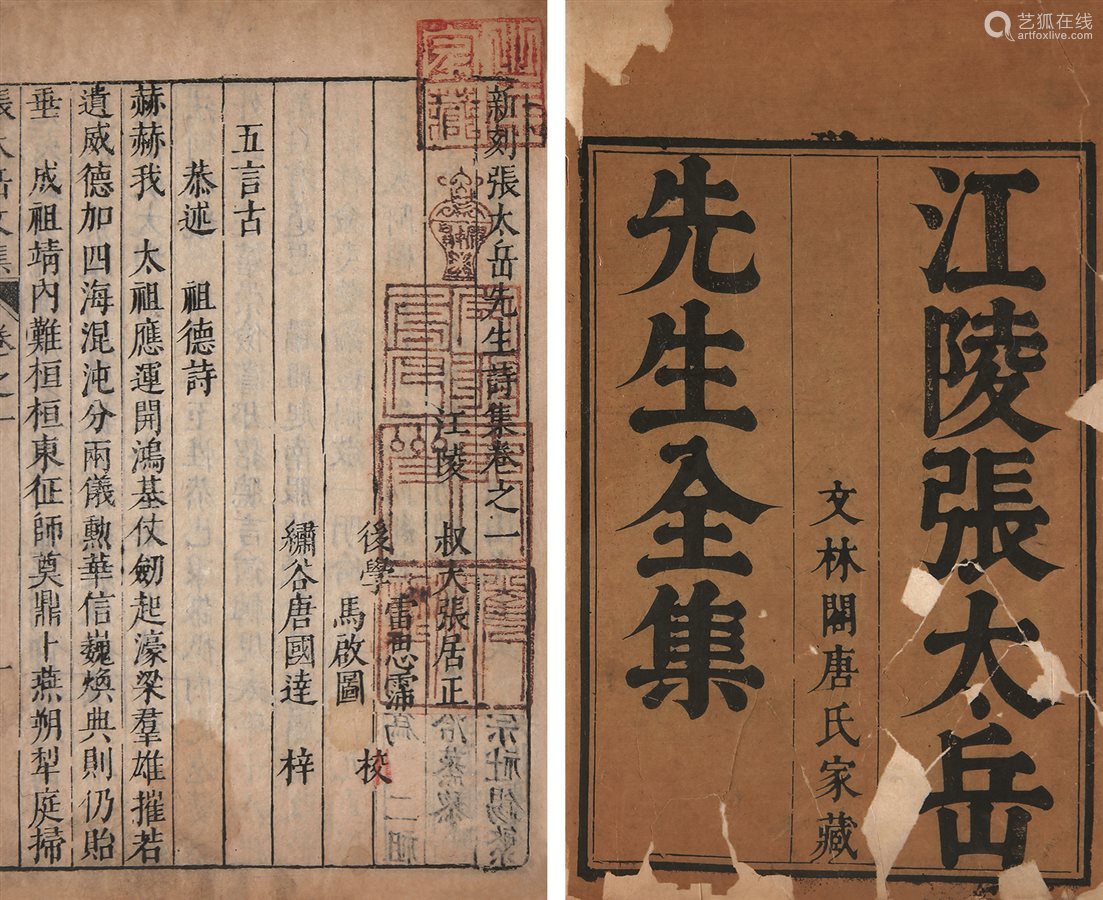 江陵張太岳
文林閣唐氏家藏
先生全集
新刻張太岳先生詩集卷之一
江陵 叔大張居正
後學 雷思霈
馬啟圖 校
繡谷唐國達 梓
五言古
恭述 祖德詩
赫赫我 太祖應運開鴻基仗劒起濠梁羣雄摧若
遺威德加四海混沌分兩儀勲華信巍煥典則仍貽
垂 成祖靖內難桓桓東征師奠鼎卜燕朔犁庭掃
張太岳文集 卷之一
艺狐在线
artfoxlive.com